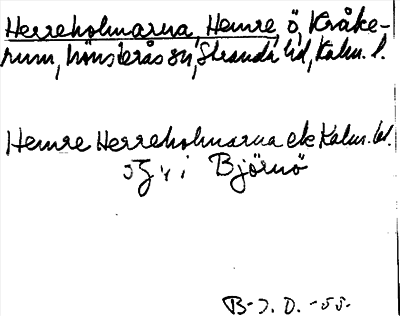 Herreholmarna, Hemre, ö, Kråke-
rum, Mönsterås sn, Stranda hd, Kalm. l.
Hemre Herreholmarna ek Kalm. bl.
i Björnö
B-J. D. -55-